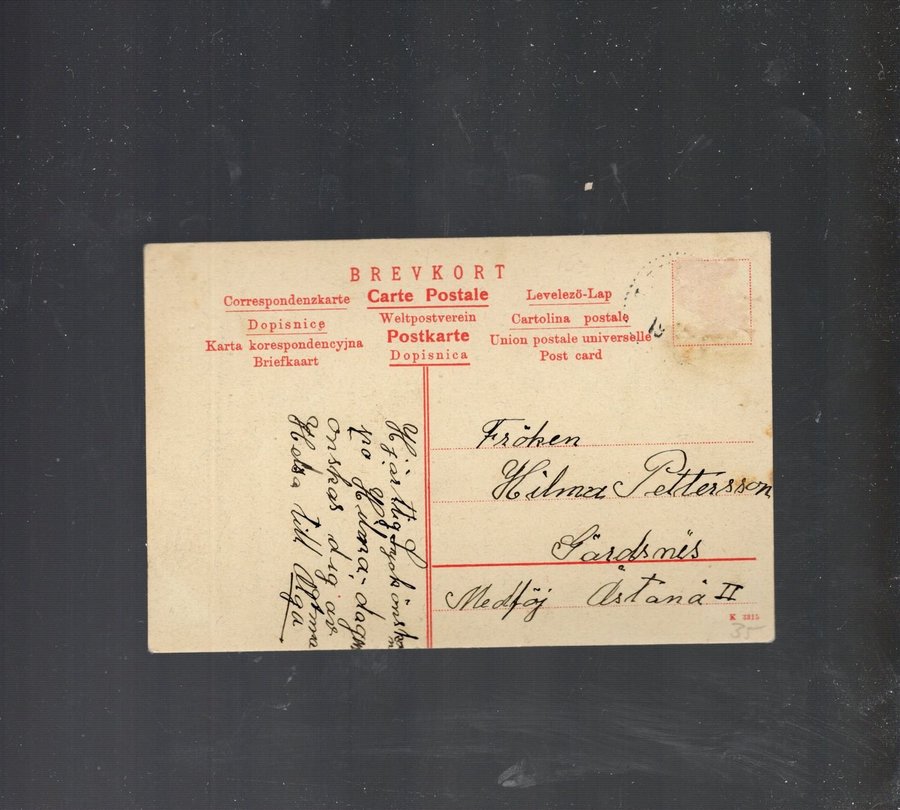 BREVKORT
Correspondenzkarte Carte Postale Levelező-Lap
Dopisnice Weltpostverein Cartolina postale
Karta korespondencyjna Postkarte Union postale universelle
Briefkaart Dopisnica Post card
Hjärtlig Lyckönskan
på Hilma-dagen
önskas dig av
Helsa till Alga
Fröken
Hilma Pettersson
Gärdsnäs
Medföj Åstanå II
K 3315
35